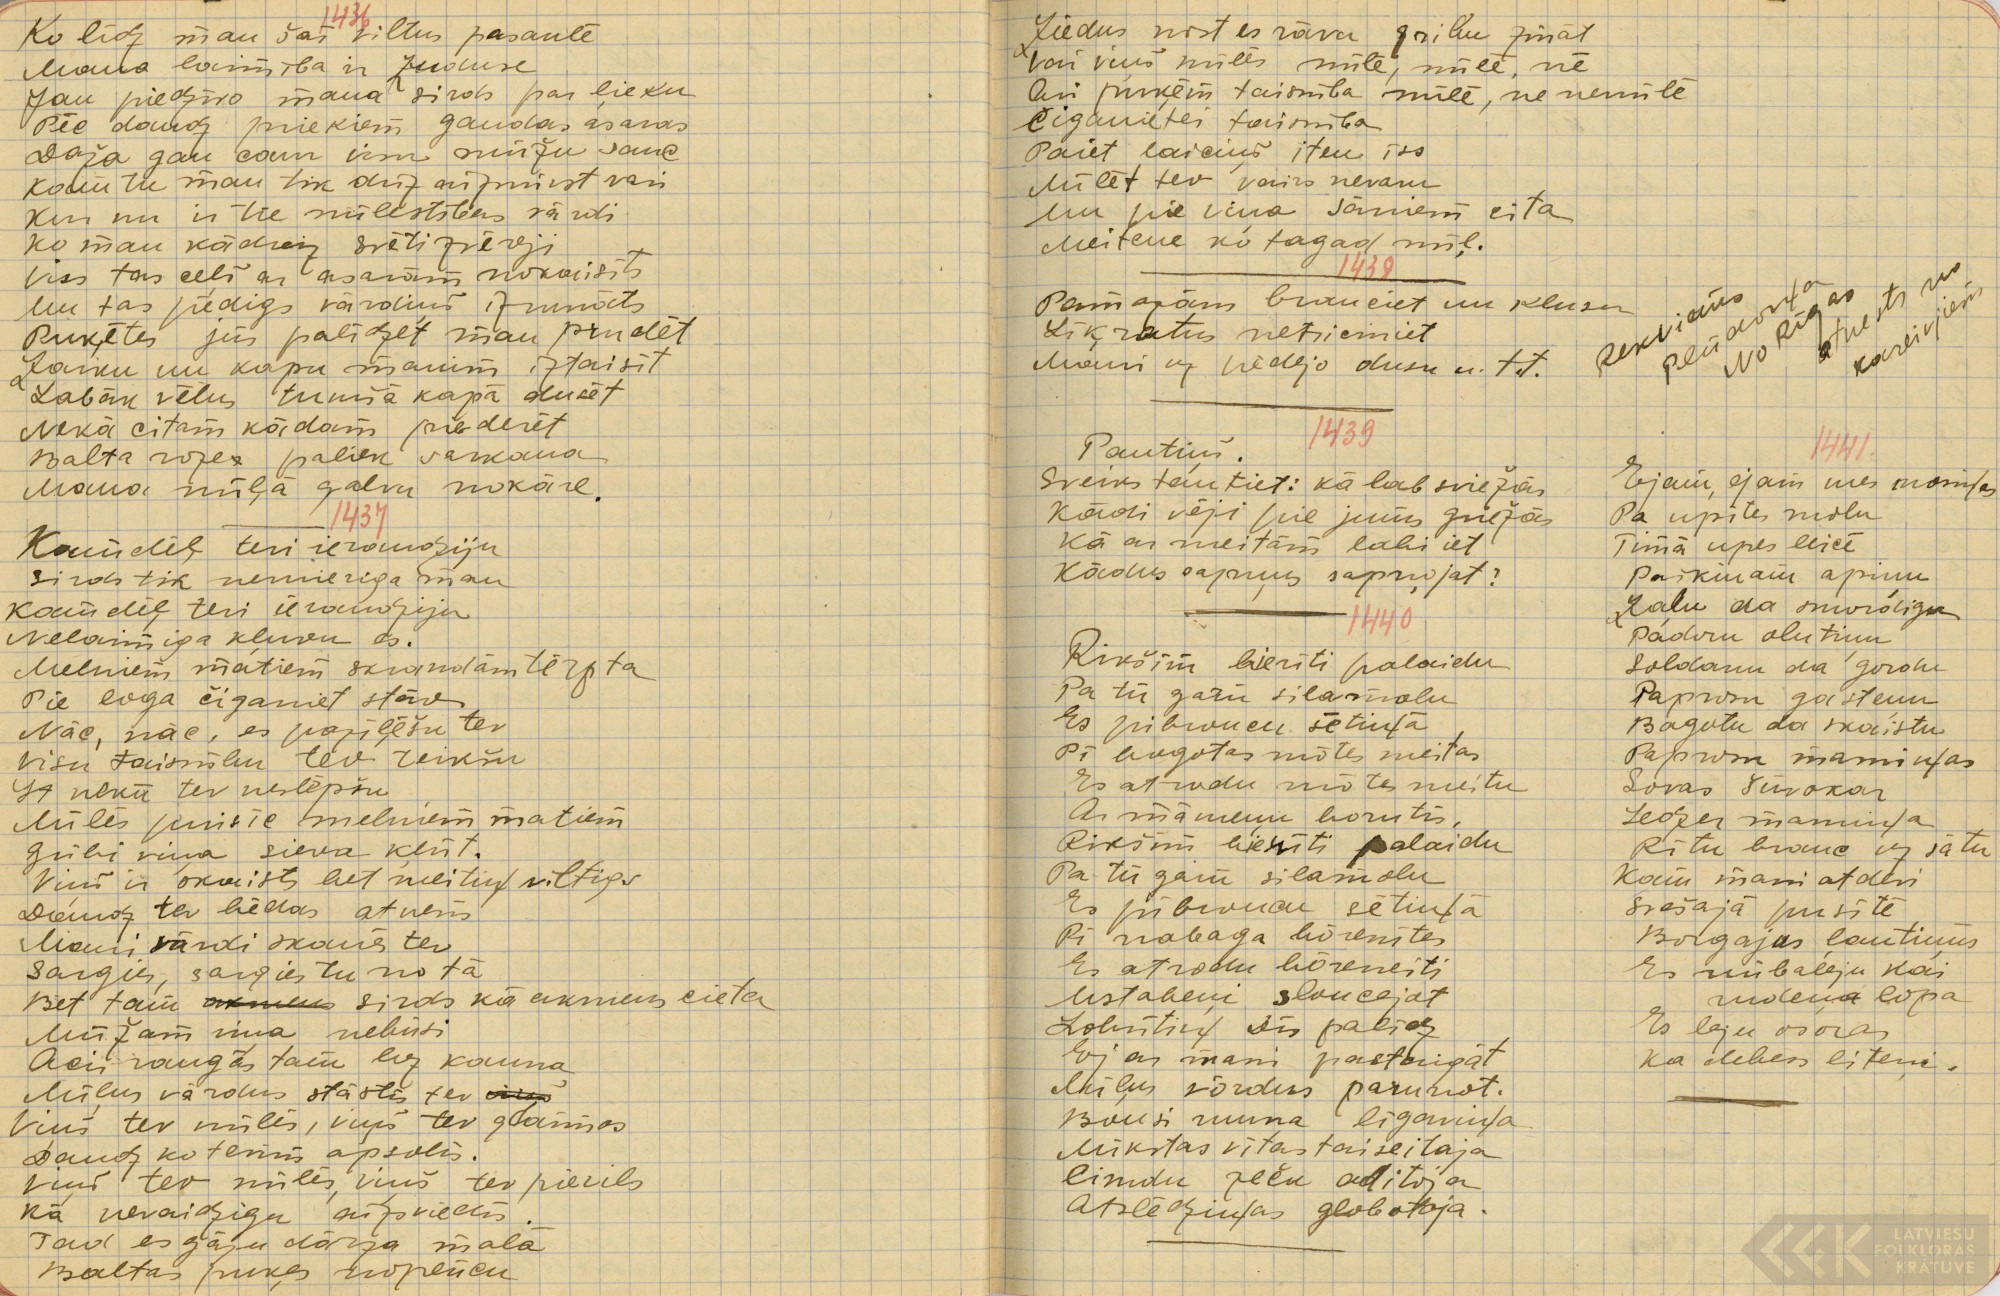 1436
Ko līdz man šai viltus pasaulē
Mana laimība ir zuduse
Jau piedzīvo mana sirds par lieku
Pēc daudz priekiem gaudas asaras
Daža gan caur visu mūžu sauc
Kam tu man tik drīz aizmirst vari
Kur nu ir tie mīlestības vārdi
Ko man kādreiz svēti zvēreji
Viss tas ceļš ar asarām nokaisīts
Nu tas pēdigs vārdiņš izrunāts
Puķētes jūs palīdzēt man prudēt
Laiku nu kapu manim iztaisīt
Labāk vēlus tumšā kapā dusēt
Nekā citam kādam piederēt
Balta roze paliek sarkana
Mana mīļā galvu nokāre.
1437
Kamdēļ tevi ieraudziju
Sirds tik nemieriga man
Kamdēļ tevi ieraudziju
Nelaimiga kļuvu es.
Melniem matiem skrandām tērpta
Pie loga čiganiet stāv
Nāc, nāc, es pazīlēšu tev
Visu taisnību tev teikšu
It nekū tev neslēpšu
Mīlēs puisīc melniem matiem
Gribi viņa sieva kļūt.
Viņš ir skaists bet meitiņ viltigs
Daudz tev bēdas atnem
Mani vārdi skanēs tev
Sargies, sargies tu no tā
Bet tam akmens sirds kā akmens cieta
Mūžam viņa nebūsi
Acis raugās tam bez kauna
Mīļus vārdus stāstīs tev viņš
Viņš tev mīlēs, viņš tev glaimos
Daudz ko tevim apsolīs.
Viņš tev mīlēs, viņš tev pievils
Kā nevaidzigu aizsviedīs.
Tad es gāju dārza malā
Baltas puķes noplūcu
Ziedus nost es rāvu gribu zināt
Vai viņš mīlēs mīlē, mīlē, nē
Ari puķēm taisnība mīlē, ne nemīlē
Čiganietei taisnība
Paiet laiciņš īten īss
Mīlēt tev vairs nevaru
Nu pie viņa sāniem cita
Meitene ko tagad mīļ.
1438
Pamazām brauciet un klusu
Līķratus netriciniet
Mani uz pēdejo dusu u. t.t.
Rekviēms
No Rīgas
atvests no
kareivjiem
1439
Pantiņi.
Sveiks tautiet: kā lab sviežās
Kādi vēji pie jums griežās
Kā ar meitām labi iet
Kādus sapņus sapņojat?
1440
Rikšim bieriti palaidu
Pa tū garū silamolu
Es pibroucu sētiņā
Pi bogotas mōtes meitas
Es atrodu mōtes meitu
Ar māmenu borutis,
Rikšim bierīti palaidu
Pa tū garū silamolu
Es pibroucu sētiņā
Pi nabaga bōrenītes
Es atrodu bōreneiti
Ustabeņi sloucejot
Lobrītiņ Dīs palidz
Ej ar mani pastaigāt
Mīļus vōrdus parunot.
Bousi muna līgaviņa
Mikstas vītas taiseitaja
Cimdu zeču aditōja
Atslēdziņas globotoja.
1441
Ejam, ejam mes mosiņas
Pa upites molu
Timā upes leicē
Paskinam apinu
Zaļu da smordigu
Padoru olutinu
Soldanu da gordu
Paprosu gostenu
Bogotu da skaistu
Paprosu mamiņas
Sovas šūvokar
Ledzer mamiņa
Rītu brauc uz sātu
Kam mani atdevi
Svešajā pusītē
Borgajūs lautiņūs
Es nūbaleju kai
rudeņa lopa
Es leju osoras
Ka debess liteņi.
LATVIEŠU
FOLKLORAS
KRĀTUVE